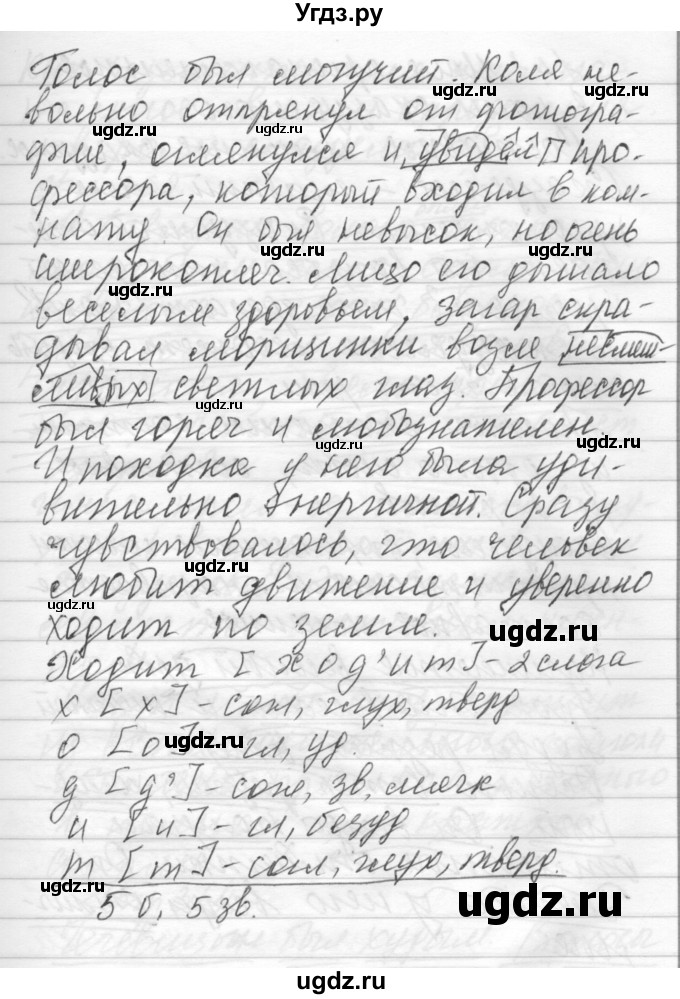 Угдз.ру
Голос был могучий. Коля не-
вольно отпрянул от фотогра-
фии, оглянулся и увидел про-
фессора, который входил в ком-
нату. Он был невысок, но очень
широкоплеч. Лицо его дышало
весёлым здоровьем, загар скра-
дывал морщинки возле насмеш-
ливых светлых глаз. Профессор
был горяч и любознателен.
И походка у него была уди-
вительно энергичной. Сразу
чувствовалось, что человек
любит движение и уверенно
ходит по земле.
Ходит [ход'ит] - 2 слога
х [х] - согл, глух, тверд
о [о] - гл, уд.
д [д'] - согл, зв, мягк
и [и] - гл, безуд
т [т] - согл, глух, тверд.
5 б, 5 зв.
ugdz.ru